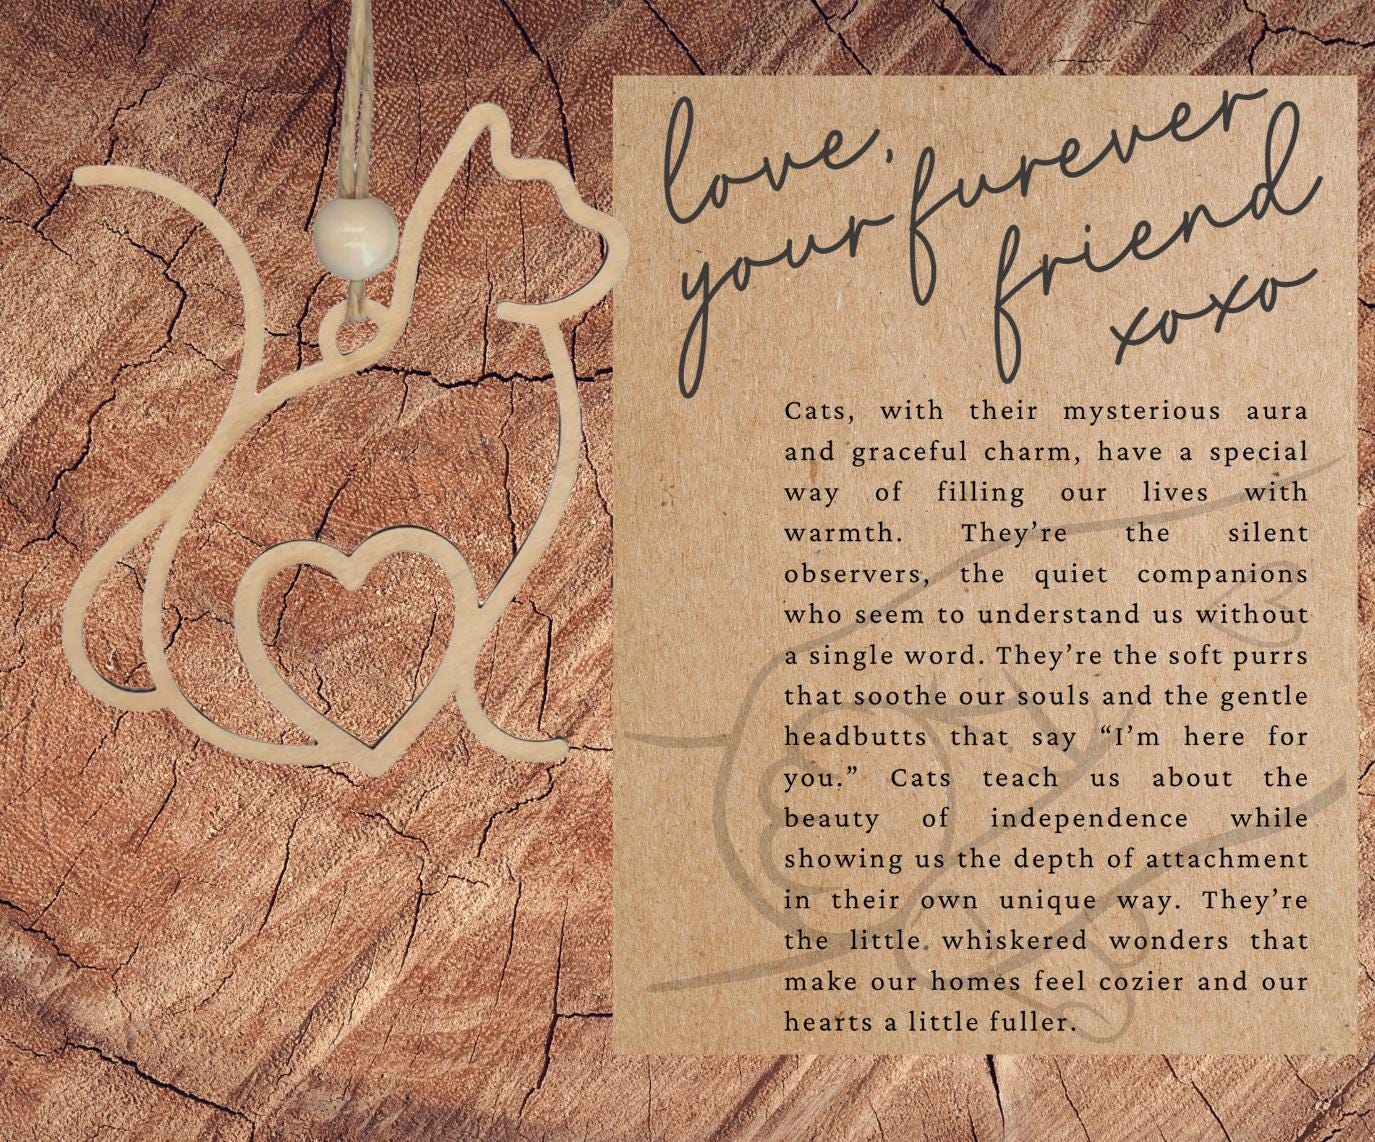 love,
your furever
friend
xoxo
Cats, with their mysterious aura
and graceful charm, have a special
way of filling our lives with
warmth. They’re the silent
observers, the quiet companions
who seem to understand us without
a single word. They’re the soft purrs
that soothe our souls and the gentle
headbutts that say “I’m here for
you.” Cats teach us about the
beauty of independence while
showing us the depth of attachment
in their own unique way. They’re
the little whiskered wonders that
make our homes feel cozier and our
hearts a little fuller.